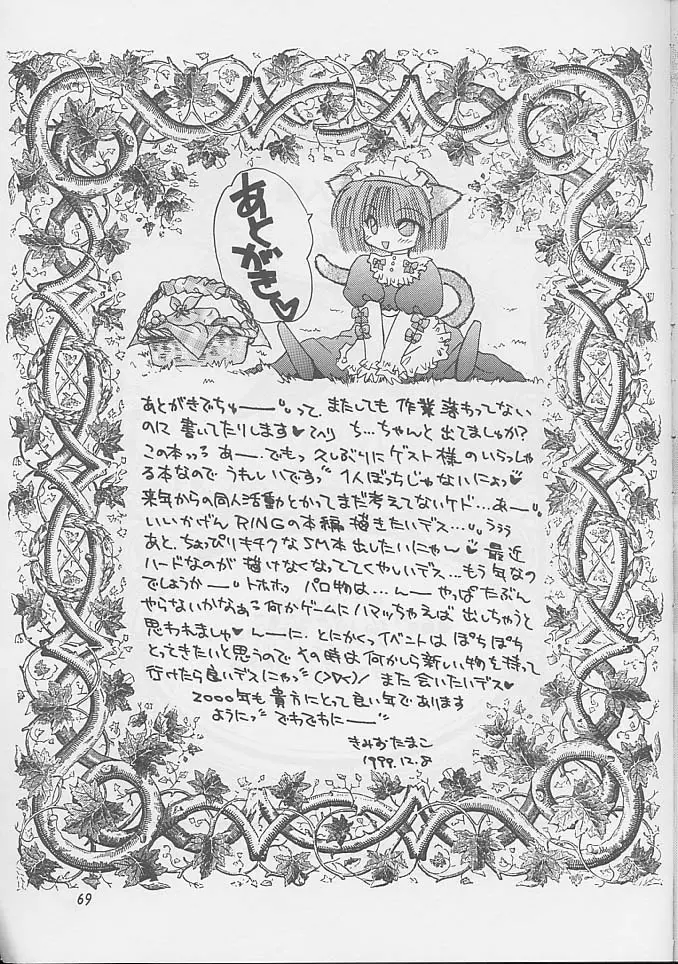 あとがき♥
あとがきでちゅーー"。って、またしても 作業 終わってない
のに 書いてたりします♥てへり ち…ちゃんと 出てましゅか?
この本っっ。あー、でもっ 久しぶりに ゲスト様 のいらっしゃ
る本なので うれしいですっ" 1人ぼっちじゃないにょっ♥
来年からの同人活動とかって まだ考えてないケド…あー"。
いいかげん RINGの本編 描きたいデス…。うぅぅ
あと、ちょっぴりキチクなSM本 出したいにゃ〜♥ 最近
ハードなのが 描けなくなっててくやしいデス…もう 年なの
でしょうかー"。トホホっ パロ物は…んー やっぱ たぶん
やらないかなぁ。何かゲームに ハマッちゃえば 出しちゃうと
思われましゅ♥ んーに、とにかくっ イベントは ぽちぽち
とってきたいと思うので その時は 何かしら新しい物を持って
行けたら良いデスにゃっ" (>▽<)/ また 会いたいデス♥
2000年も 貴方にとって 良い年で あります
ように" でわでわにー"
きみおたまこ
1999.12.8
69